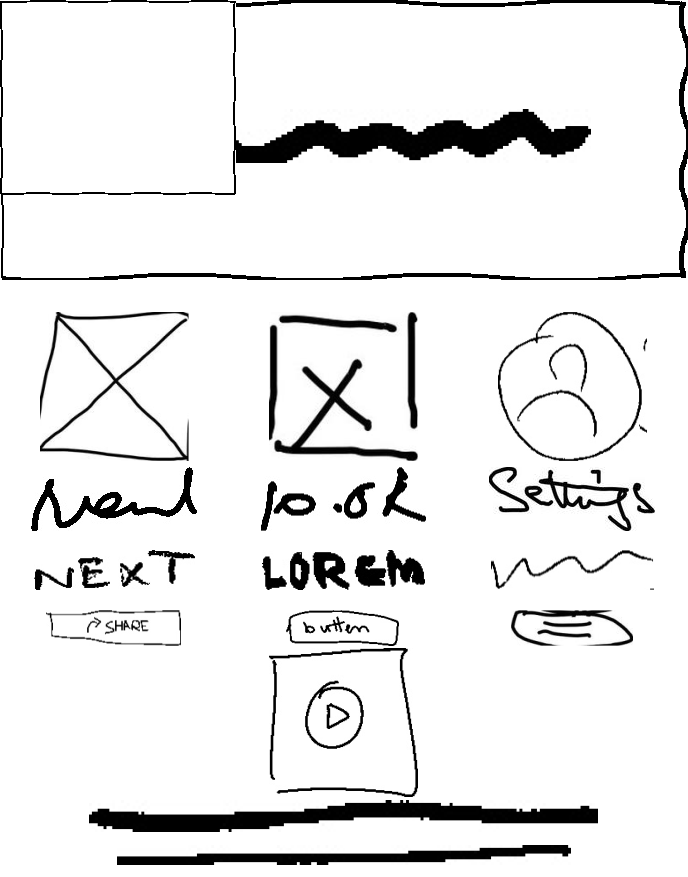 10.6K Settings
NEXT LOREM
SHARE button